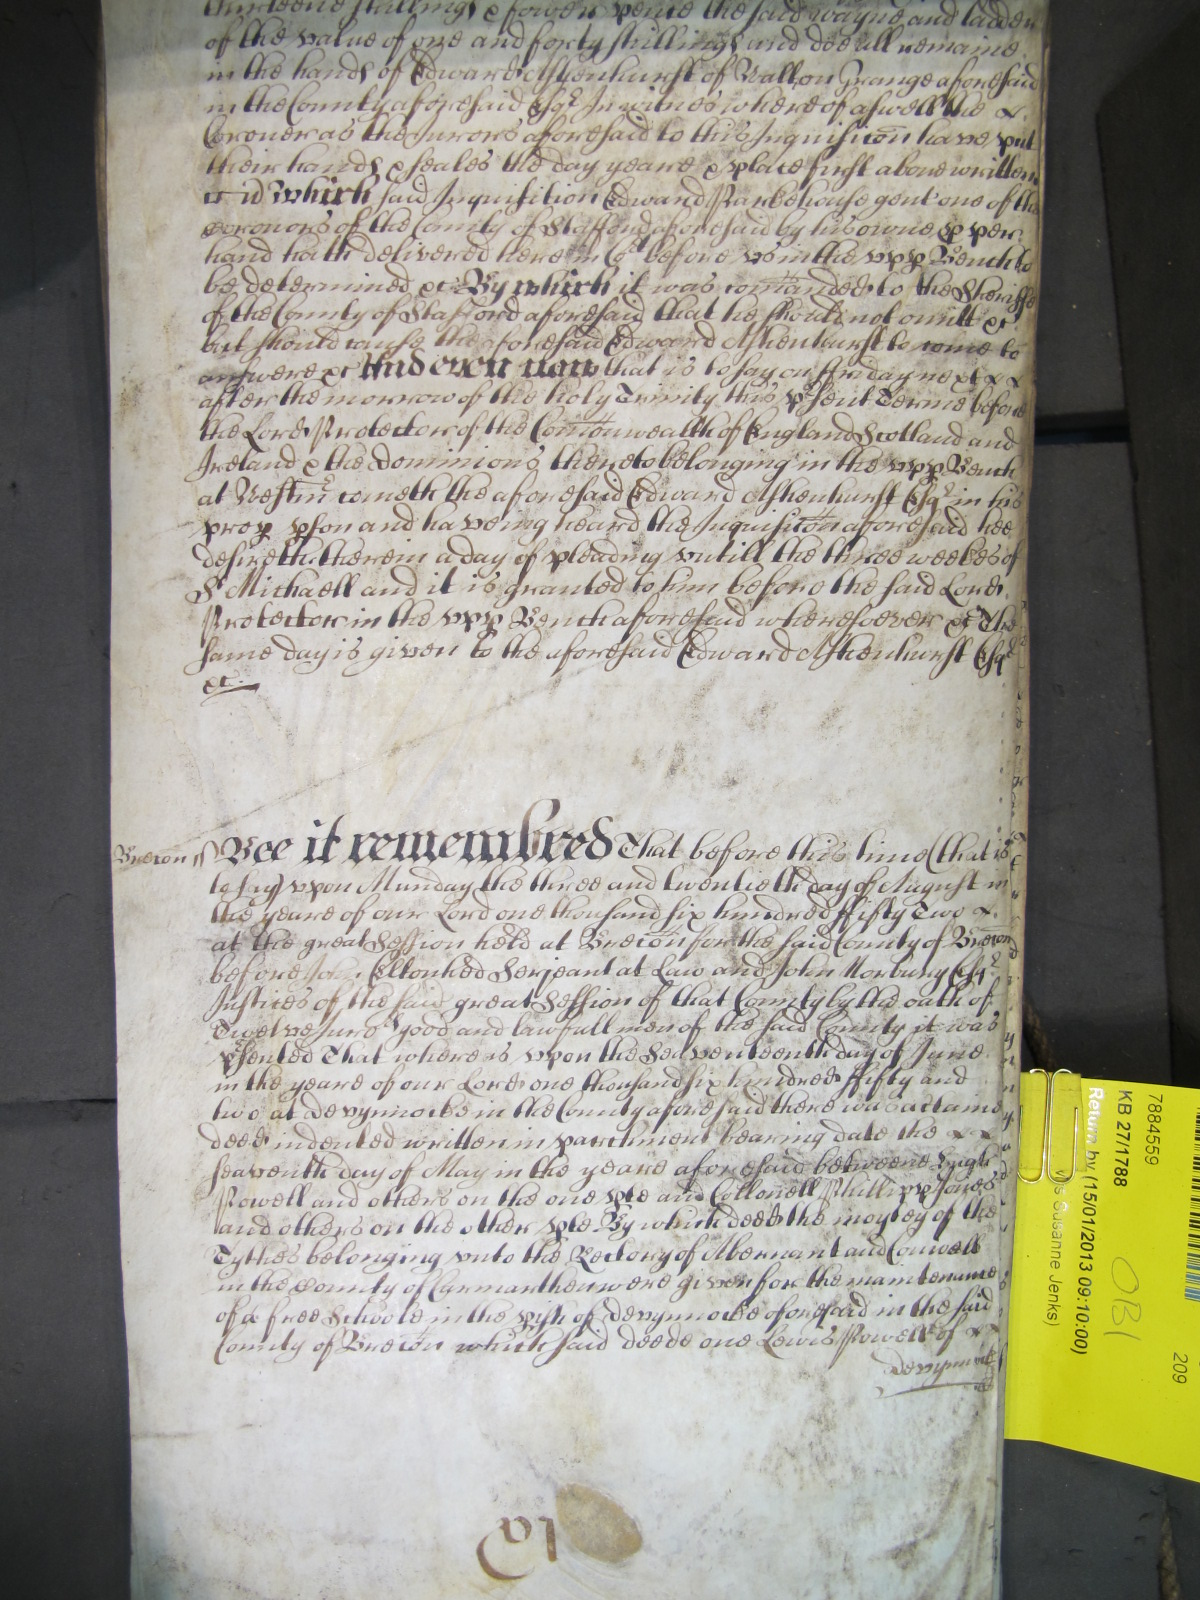 thirteene shillings & fower pence the said wayne and ladder
of the value of one and forty shillings and doe all remaine
in the hands of Edward Ashenhurst of Wallon Grange aforesaid
in the County aforesaid Esqr In witnes where of aswell the x
Coroner as the Jurors aforesaid to this Inquisicon have put
their hands & seales the day yeare & place first above written
which said Inquisition Edward Parkehouse gent one of the
coronors of the County of Stafford aforesaid by his owne pper
hand hath delivered here in Co't before us in the upp Bench to
be determined &c By which it was comanded to the Sheriffe
of the County of Stafford aforesaid that he should not omitt &c
but should cause the aforesaid Edward Ashenhurst to come to
answere &c And even now that is to say on Friday next x x
after the morrow of the holy Trinity this psent Terme before
the Lord Protector of the Comonwealth of England Scotland and
Ireland & the dominions thereto belonging in the upp Bench
at Westmr cometh the aforesaid Edward Ashenhurst Esqr in his
prop pson and haveing heard the Inquisicon aforesaid hee
desireth therein a day of pleading untill the three weekes of
St Michaell and it is granted to him before the said Lord
Protector in the upp Bench aforesaid wheresoever &c The
same day is given to the aforesaid Edward Ashenhurst Esqr
&c
Brecon ss Bee it remembred That before this time (that is
to say) upon Munday the three and twentieth day of August in
the yeare of our Lord one thousand six hundred fifty Two x
at the great Session held at Brecon for the said County of Brecon
before John Eltonhed Serjeant at Law and John Norbury Esqr
Justices of the said great Session of that County by the oath of
Twelve Juros good and lawfull men of the said County it was
psented That whereas upon the Seaventeenth day of June
in the yeare of our Lord one thousand six hundred fifty and
two at Devynnocke in the County aforesaid there was a certaine
deed indented written in parchment bearing date the x x
seaventh day of May in the yeare aforesaid betweene Hugh
Powell and others on the one pte and Collonell Phillipp Jones
and others on the other pte By which deed the moytey of the
Tythes belonging unto the Rectory of Abernant and Convell
in the County of Carmarthen were given for the maintenance
of a free Schoole in the pish of Devynnocke aforesaid in the said
County of Brecon which said deede one Lewis Powell of x x
Devynnock
7884559
KB 27/1788
Return by (15/01/2013 09:10:00)
s Susanne Jenks)
OB1
209